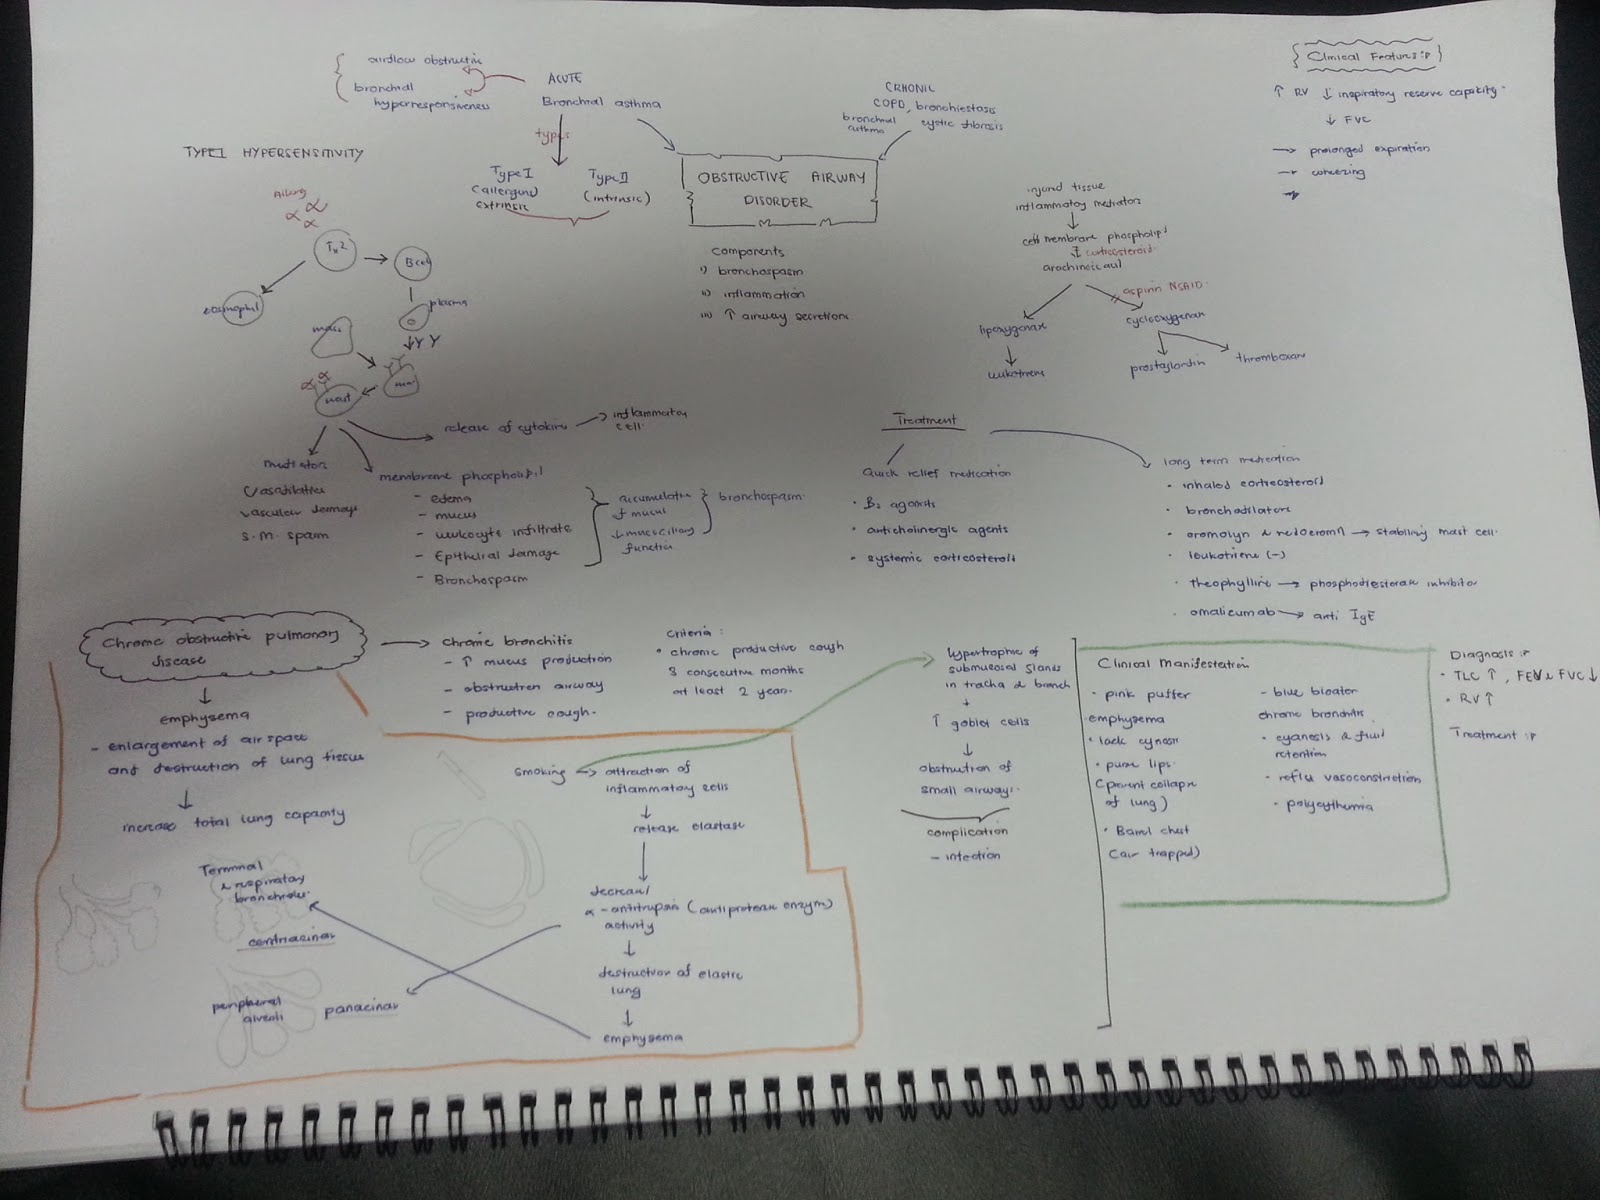 airflow obstructive
bronchial
hyperresponsiveness
ACUTE
Bronchial asthma
types
Type I
(allergen)
extrinsic
Type II
(intrinsic)
CRHONIC
COPD, bronchiestasis
bronchial
asthma
cystic fibrosis
OBSTRUCTIVE AIRWAY
DISORDER
components
i) bronchospasm
ii) inflammation
iii) ↑ airway secretion
Clinical Features :p
↑ RV ↓ inspiratory reserve capacity
↓ FVC
→ prolonged expiration
→ wheezing
→
injured tissue
inflammatory mediators
cell membrane phospholipid
corticosteroid
aspirin NSAID
lipoxygenase
leukotriene
cyclooxygenase
prostaglandin
thromboxane
TYPE I HYPERSENSITIVITY
TH2
B cell
eosinophil
plasma
mast
mast
mast
release of cytokine → inflammatory
cell
mediators
vasodilatation
vascular damage
S.M. spasm
membrane phospholipid
- edema
- mucus
- leukocyte infiltrate
- Epithelial damage
- Bronchospasm
accumulation
of mucus
↓ mucociliary
function
bronchospasm
Treatment
Quick relief medication
• B2 agonists
• anticholinergic agents
• systemic corticosteroid
long term medication
• inhaled corticosteroid
• bronchodilators
• cromolyn & nedocromil → stabiling mast cell
• leukotriene (-)
• theophylline → phosphodiesterase inhibitor
• omalizumab → anti IgE
Chronic obstructive pulmonary
disease
chronic bronchitis
- ↑ mucus production
- obstruction airway
- productive cough.
criteria :
• chronic productive cough
3 consecutive months
at least 2 years.
emphysema
- enlargement of air space
and destruction of lung tissue
↓
increase total lung capacity
smoking → attraction of
inflammatory cells
↓
release elastase
↓
decrease
α-antitrypsin (antiprotease enzym)
activity
↓
destruction of elastic
lung
↓
emphysema
Terminal
& respiratory
bronchioles
centriacinar
peripheral
alveoli
panacinar
hypertrophic of
submucosal glands
in trachea & bronch
↓
↑ goblet cells
↓
obstruction of
small airways
complication
- infection
Clinical Manifestation
• pink puffer
emphysema
• lack cynosis
• purse lips
(prevent collapse
of lung)
• Barrel chest
(air trapped)
- blue bloater
chronic bronchitis
• cyanosis & fluid
retention
• reflex vasoconstriction
• polycythemia
Diagnosis :p
• TLC ↑, FEV & FVC ↓
• RV ↑
Treatment :p